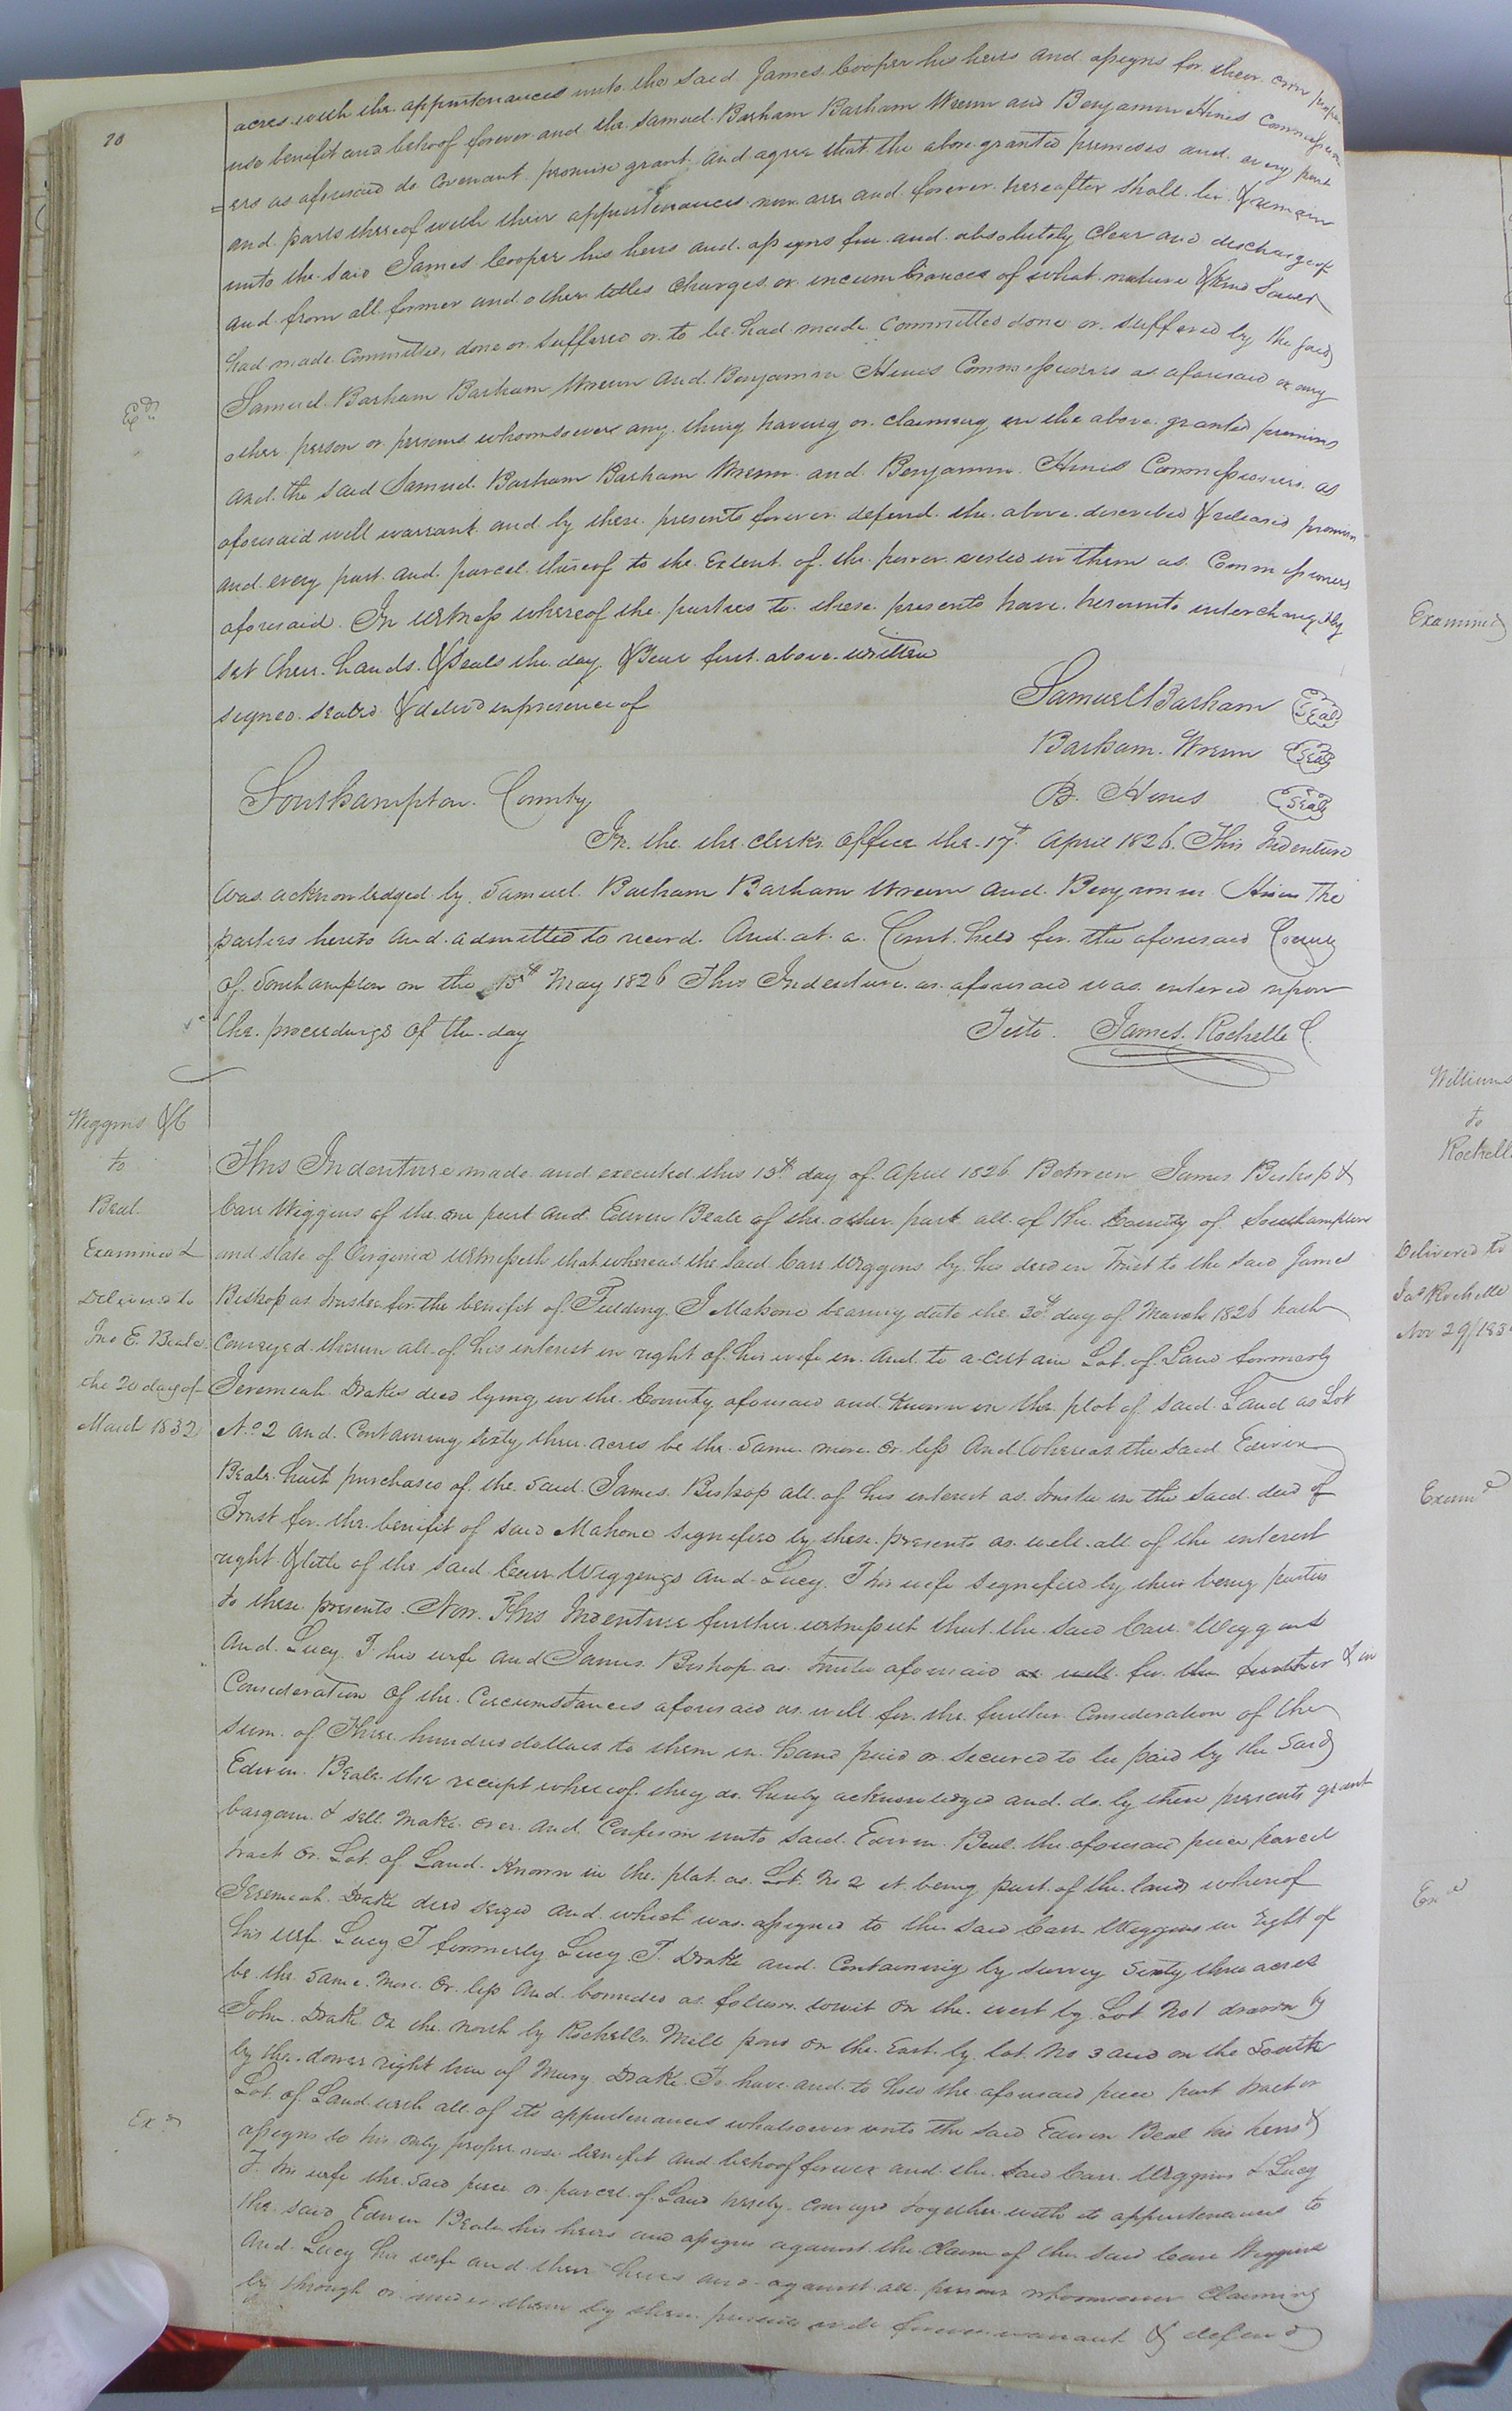 20
acres with the appurtenances unto the said James Cooper his heirs and assigns for their own proper
use benefit and behoof forever and the Samuel Barham Barham Wrenn and Benjamin Hines Commission
=ers as aforesaid do covenant promise grant and agree that the above granted premises and every part
and parts thereof with their appurtenances now are and forever hereafter shall be & remain
unto the said James Cooper his heirs and assigns free and absolutely clear and discharge of
and from all former and other titles charges or incumbrances of what nature & kind soever
had made committed, done or suffered or to be had made committed done or suffered by the said
Samuel Barham Barham Wrenn and Benjamin Hines Commissioners as aforesaid or any
Exd
other person or persons whomsoever any thing having or claiming in the above granted premises
and the said Samuel Barham Barham Wrenn and Benjamin Hines Commissioners as
aforesaid will warrant and by these presents forever defend the above described & released premises
and every part and parcel thereof to the Extent of the power vested in them as Commissioners
aforesaid. In witness whereof the parties to these presents have hereunto interchangibly
set their hands & Seals the day & Year first above written
signed sealed & delivd in presence of
Samuel Barham Seal
Barham Wrenn Seal
B. Hines Seal
Southampton County
In the the clerks office the 17th April 1826. This Indenture
was acknowledged by Samuel Barham Barham Wrenn and Benjamin Hines the
parties hereto and admitted to record. And at a Court held for the aforesaid County
of Southampton on the 15th May 1826 This Indenture as aforesaid was entered upon
the proceedings of the day
Teste. James Rochelle C.
Wiggins &C
to
Beal
Examined &
Delivered to
Jno E. Beale
the 20 day of
March 1832
This Indenture made and executed this 15th day of April 1826 Between James Bishop &
Carr Wiggins of the one part and Edwin Beale of the other part all of the County of Southampton
and state of Virginia Witnesseth that whereas the said Carr Wiggins by his deed in Trust to the said James
Bishop as trustee for the benefit of Fielding J Mahone bearing date the 30th day of March 1826 hath
conveyed therein all of his interest in right of his wife in and to a certain Lot of Land formerly
Jeremiah Drakes decd lying in the County aforesaid and known in the plot of said Land as Lot
No 2 and Containing sixty three acres be the same more or less And Whereas the said Edwin
Beale hath purchased of the said James Bishop all of his interest as trustee in the said deed of
Trust for the benifit of said Mahone signified by these presents as well all of the interest
right & title of the said Carr Wiggengs and Lucy T his wife signified by their being parties
to these presents. Now This Indenture further witnesseth that the said Carr Wiggins
And Lucy T his wife and James Bishop as trustee aforesaid as well for the further & in
Consideration of the Circumstances aforesaid as well for the further Consideration of the
sum of Three hundred dollars to them in hand paid or secured to be paid by the said
Edwin Beale the receipt whereof they do hereby acknowledged and do by these presents grant
bargain & sell make over and Confirm unto said Edwin Beal the aforesaid piece parcel
tract or Lot of Land known in the plat as Lot No 2 it being part of the land whereof
Jeremiah Drake decd seized and which was assigned to the said Carr Wiggins in right of
his wife Lucy T formerly Lucy T. Drake and Containing by survey Sixty three acres
be the same more or less and bounded as follows towit on the west by Lot No 1 drawn by
John Drake on the north by Rochells Mill pond on the East by lot No 3 and on the South
by the dower right line of Mary Drake To have and to hold the aforesaid piece part tract or
Lot of Land with all of its appurtenances whatsoever unto the said Edwin Beal his heirs &
Exd
assigns to his only proper use benefit and behoof forever and the said Carr Wiggins & Lucy
T. his wife the said piece or parcel of Land hereby conveyed together with it appurtenances to
the said Edwin Beale his heirs and assigns against the claim of the said Carr Wiggins
and Lucy his wife and their heirs and against all persons whomsoever claiming
by through or under them by these presents will forever warrant & defend
Examined
Williams
to
Rochell
Delivered to
Jas Rochelle
Nov 29/183
Examd
Exd